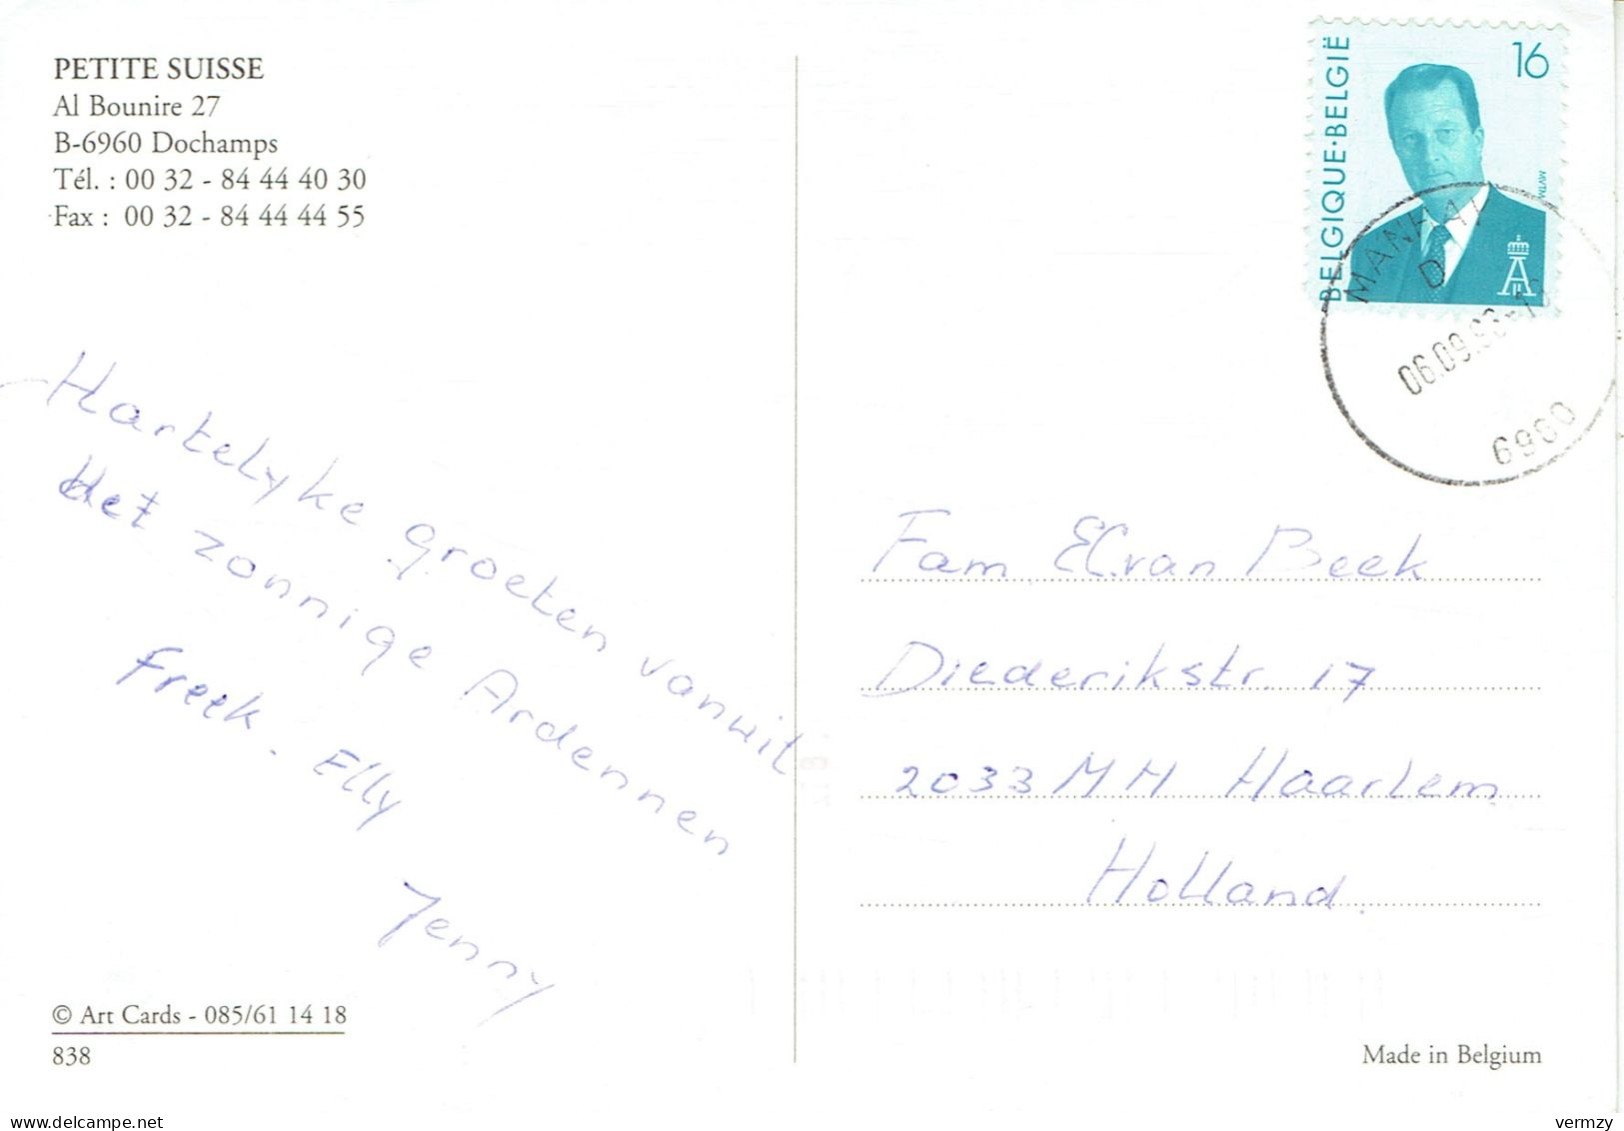 PETITE SUISSE
Al Bounire 27
B-6960 Dochamps
Tél. : 00 32 - 84 44 40 30
Fax : 00 32 - 84 44 44 55
Hartelyke groeten vanuit
Het zonnige Ardennen
Freek. Elly
Jenny
© Art Cards - 085/61 14 18
838
BELGIQUE·BELGIË
16
MVTM
MANHAY
D
06.09.96
6960
Fam. E.C. van Beek
Diederikstr. 17
2033 MH Haarlem
Holland.
Made in Belgium
vermzy
delcampe.net